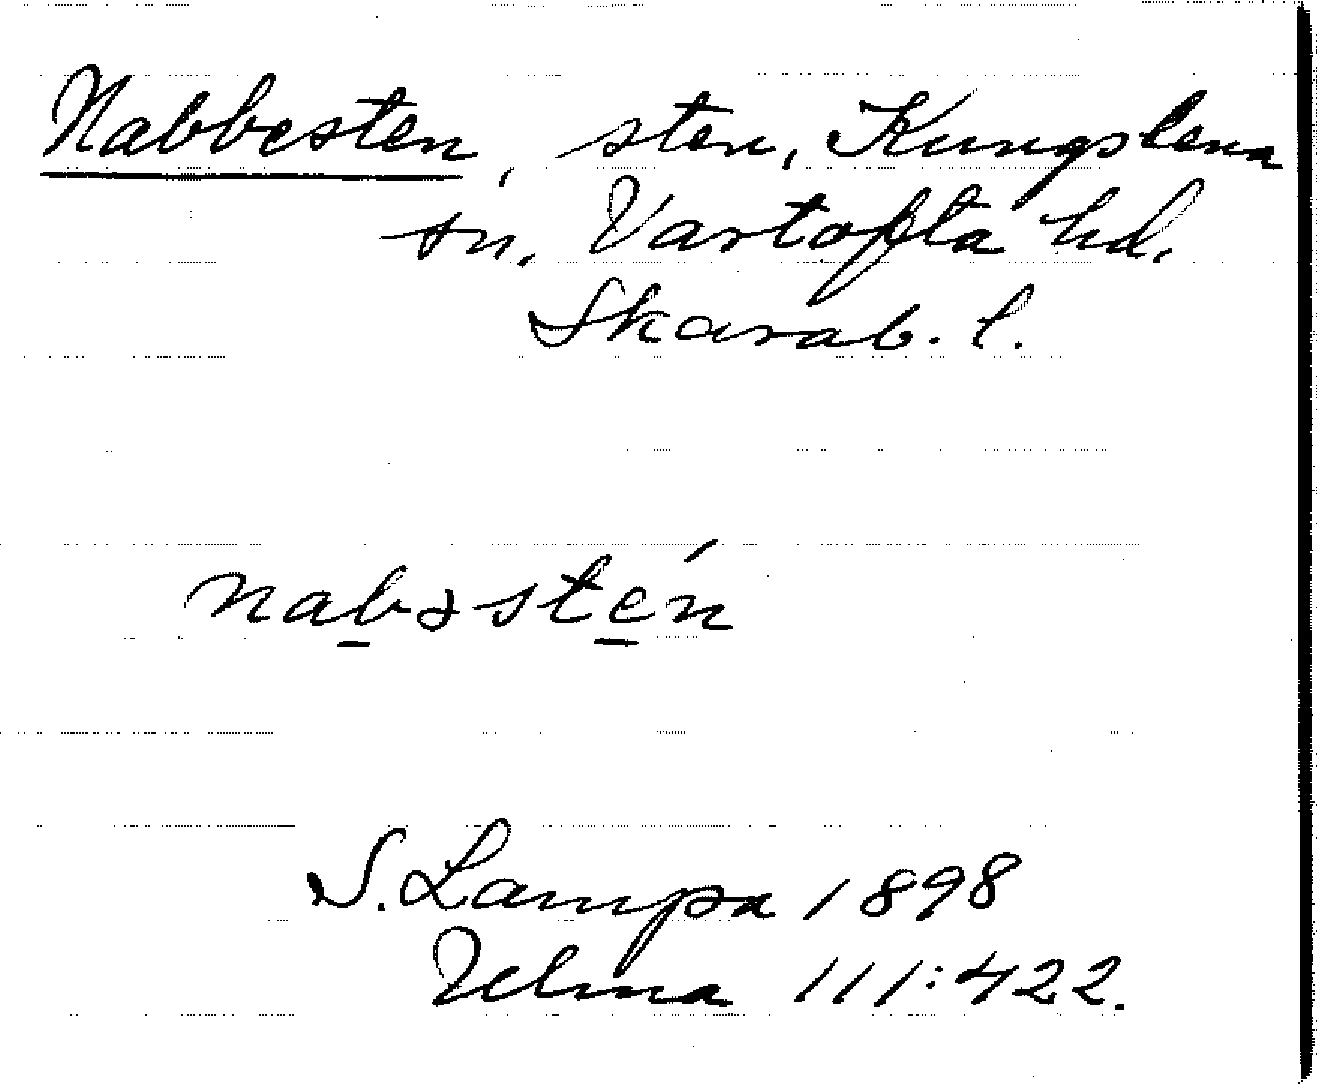 Nabbesten, sten, Kungslena
sn, Vartofta hd.
Skarab. l.
nabəstén
S. Lampa 1898
Ulma 111:422.